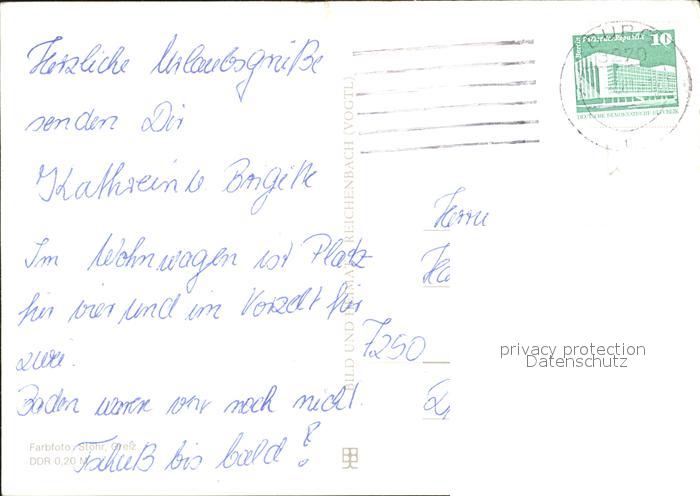 Herzliche Urlaubsgrüße
senden Dir
Kathrein u Brigitte
Im Wohnwagen ist Platz
für vier und im Vorzelt für
zwei.
Baden waren wir noch nicht.
Tschüß bis bald!
Farbfoto: Stöhr, Greiz
DDR 0,20 M
BILD UND HEIMAT REICHENBACH (VOGTL)
Berlin Palast der Republik 10
DEUTSCHE DEMOKRATISCHE REPUBLIK
Herrn
7250
privacy protection
Datenschutz